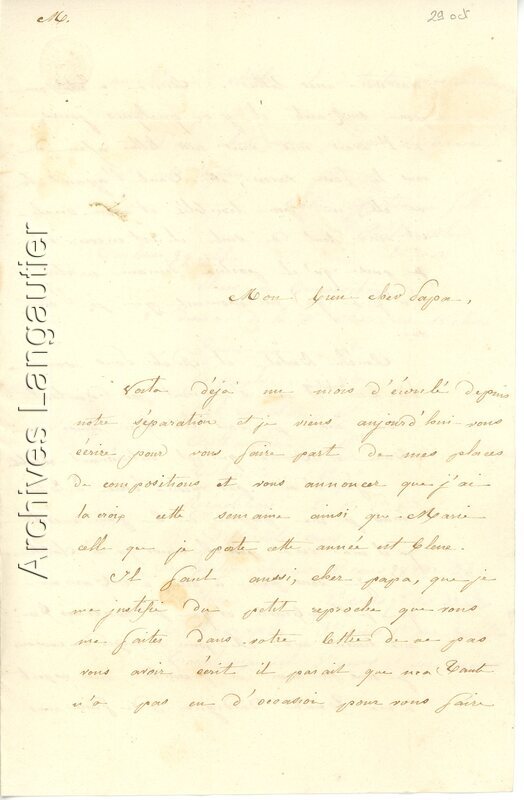 M.
29 oct
Mon bien cher Papa,
Voila déjà un mois d'écoulé depuis
notre séparation et je viens aujourd'hui vous
écrire pour vous faire part de mes places
de compositions et vous annoncer que j'ai
la croix cette semaine ainsi que Marie
celle que je porte cette année est bleue.
Il faut aussi, cher papa, que je
me justifie du petit reproche que vous
me faites dans votre lettre de ne pas
vous avoir écrit il parait que ma Tante
n'a pas eu d'occasion pour vous faire
Archives Langautier